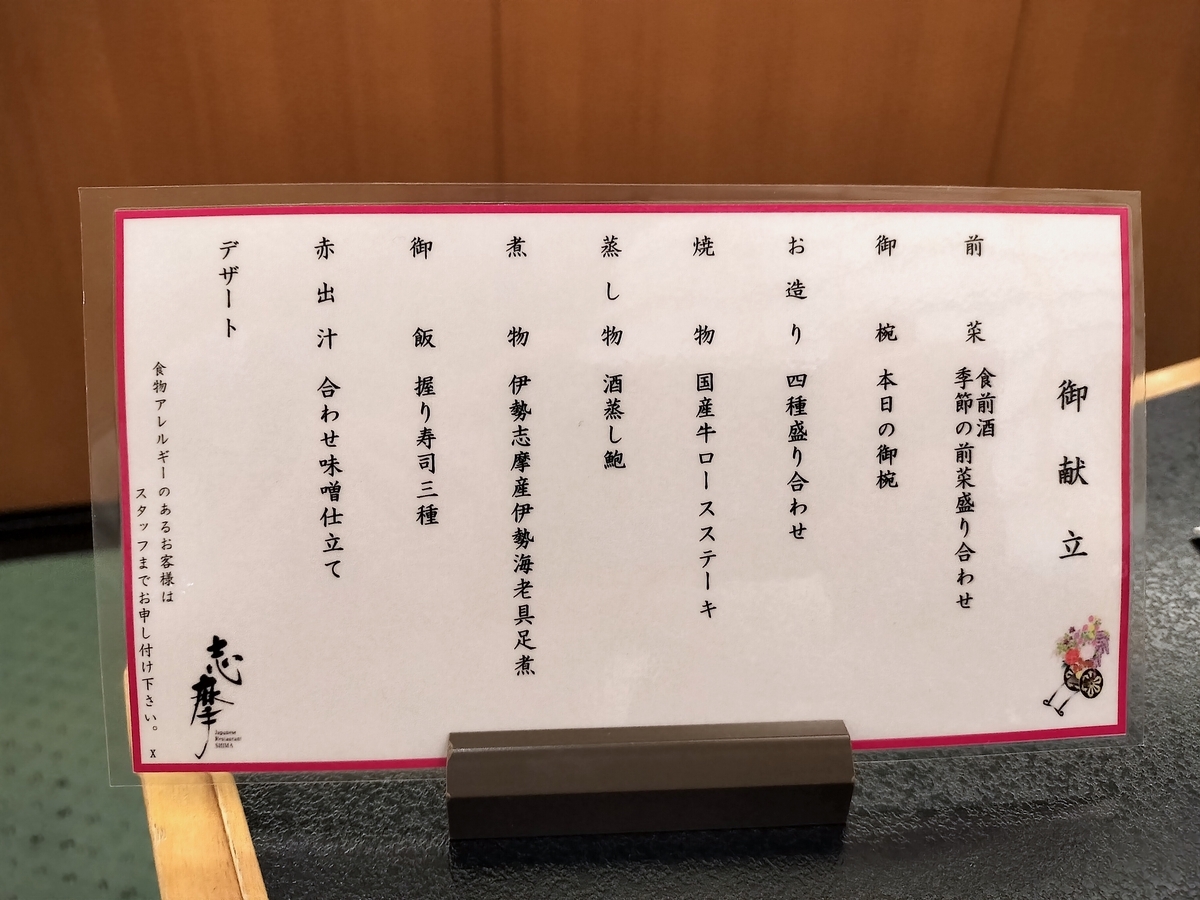 御献立
前菜 食前酒
季節の前菜盛り合わせ
御椀 本日の御椀
お造り 四種盛り合わせ
焼物 国産牛ロースステーキ
蒸し物 酒蒸し鮑
煮物 伊勢志摩産伊勢海老具足煮
御飯 握り寿司三種
赤出汁 合わせ味噌仕立て
デザート
食物アレルギーのあるお客様は
スタッフまでお申し付け下さい。 X
志摩
Japanese
Restaurant
SHIMA